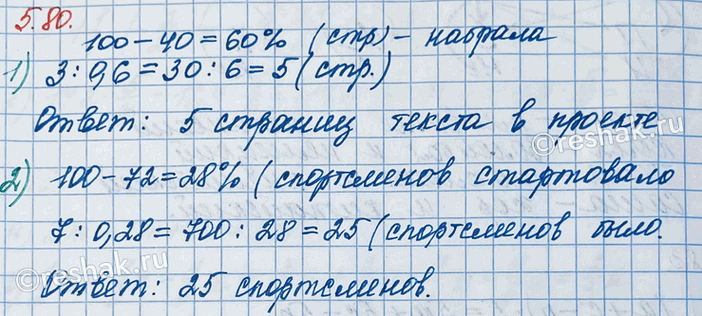 5.80.
100 - 40 = 60% (стр) - набрала
1) 3 : 0,6 = 30 : 6 = 5 (стр.)
Ответ: 5 страниц текста в проекте
2) 100 - 72 = 28% (спортсменов стартовало
7 : 0,28 = 700 : 28 = 25 (спортсменов было.
Ответ: 25 спортсменов.
©reshak.ru